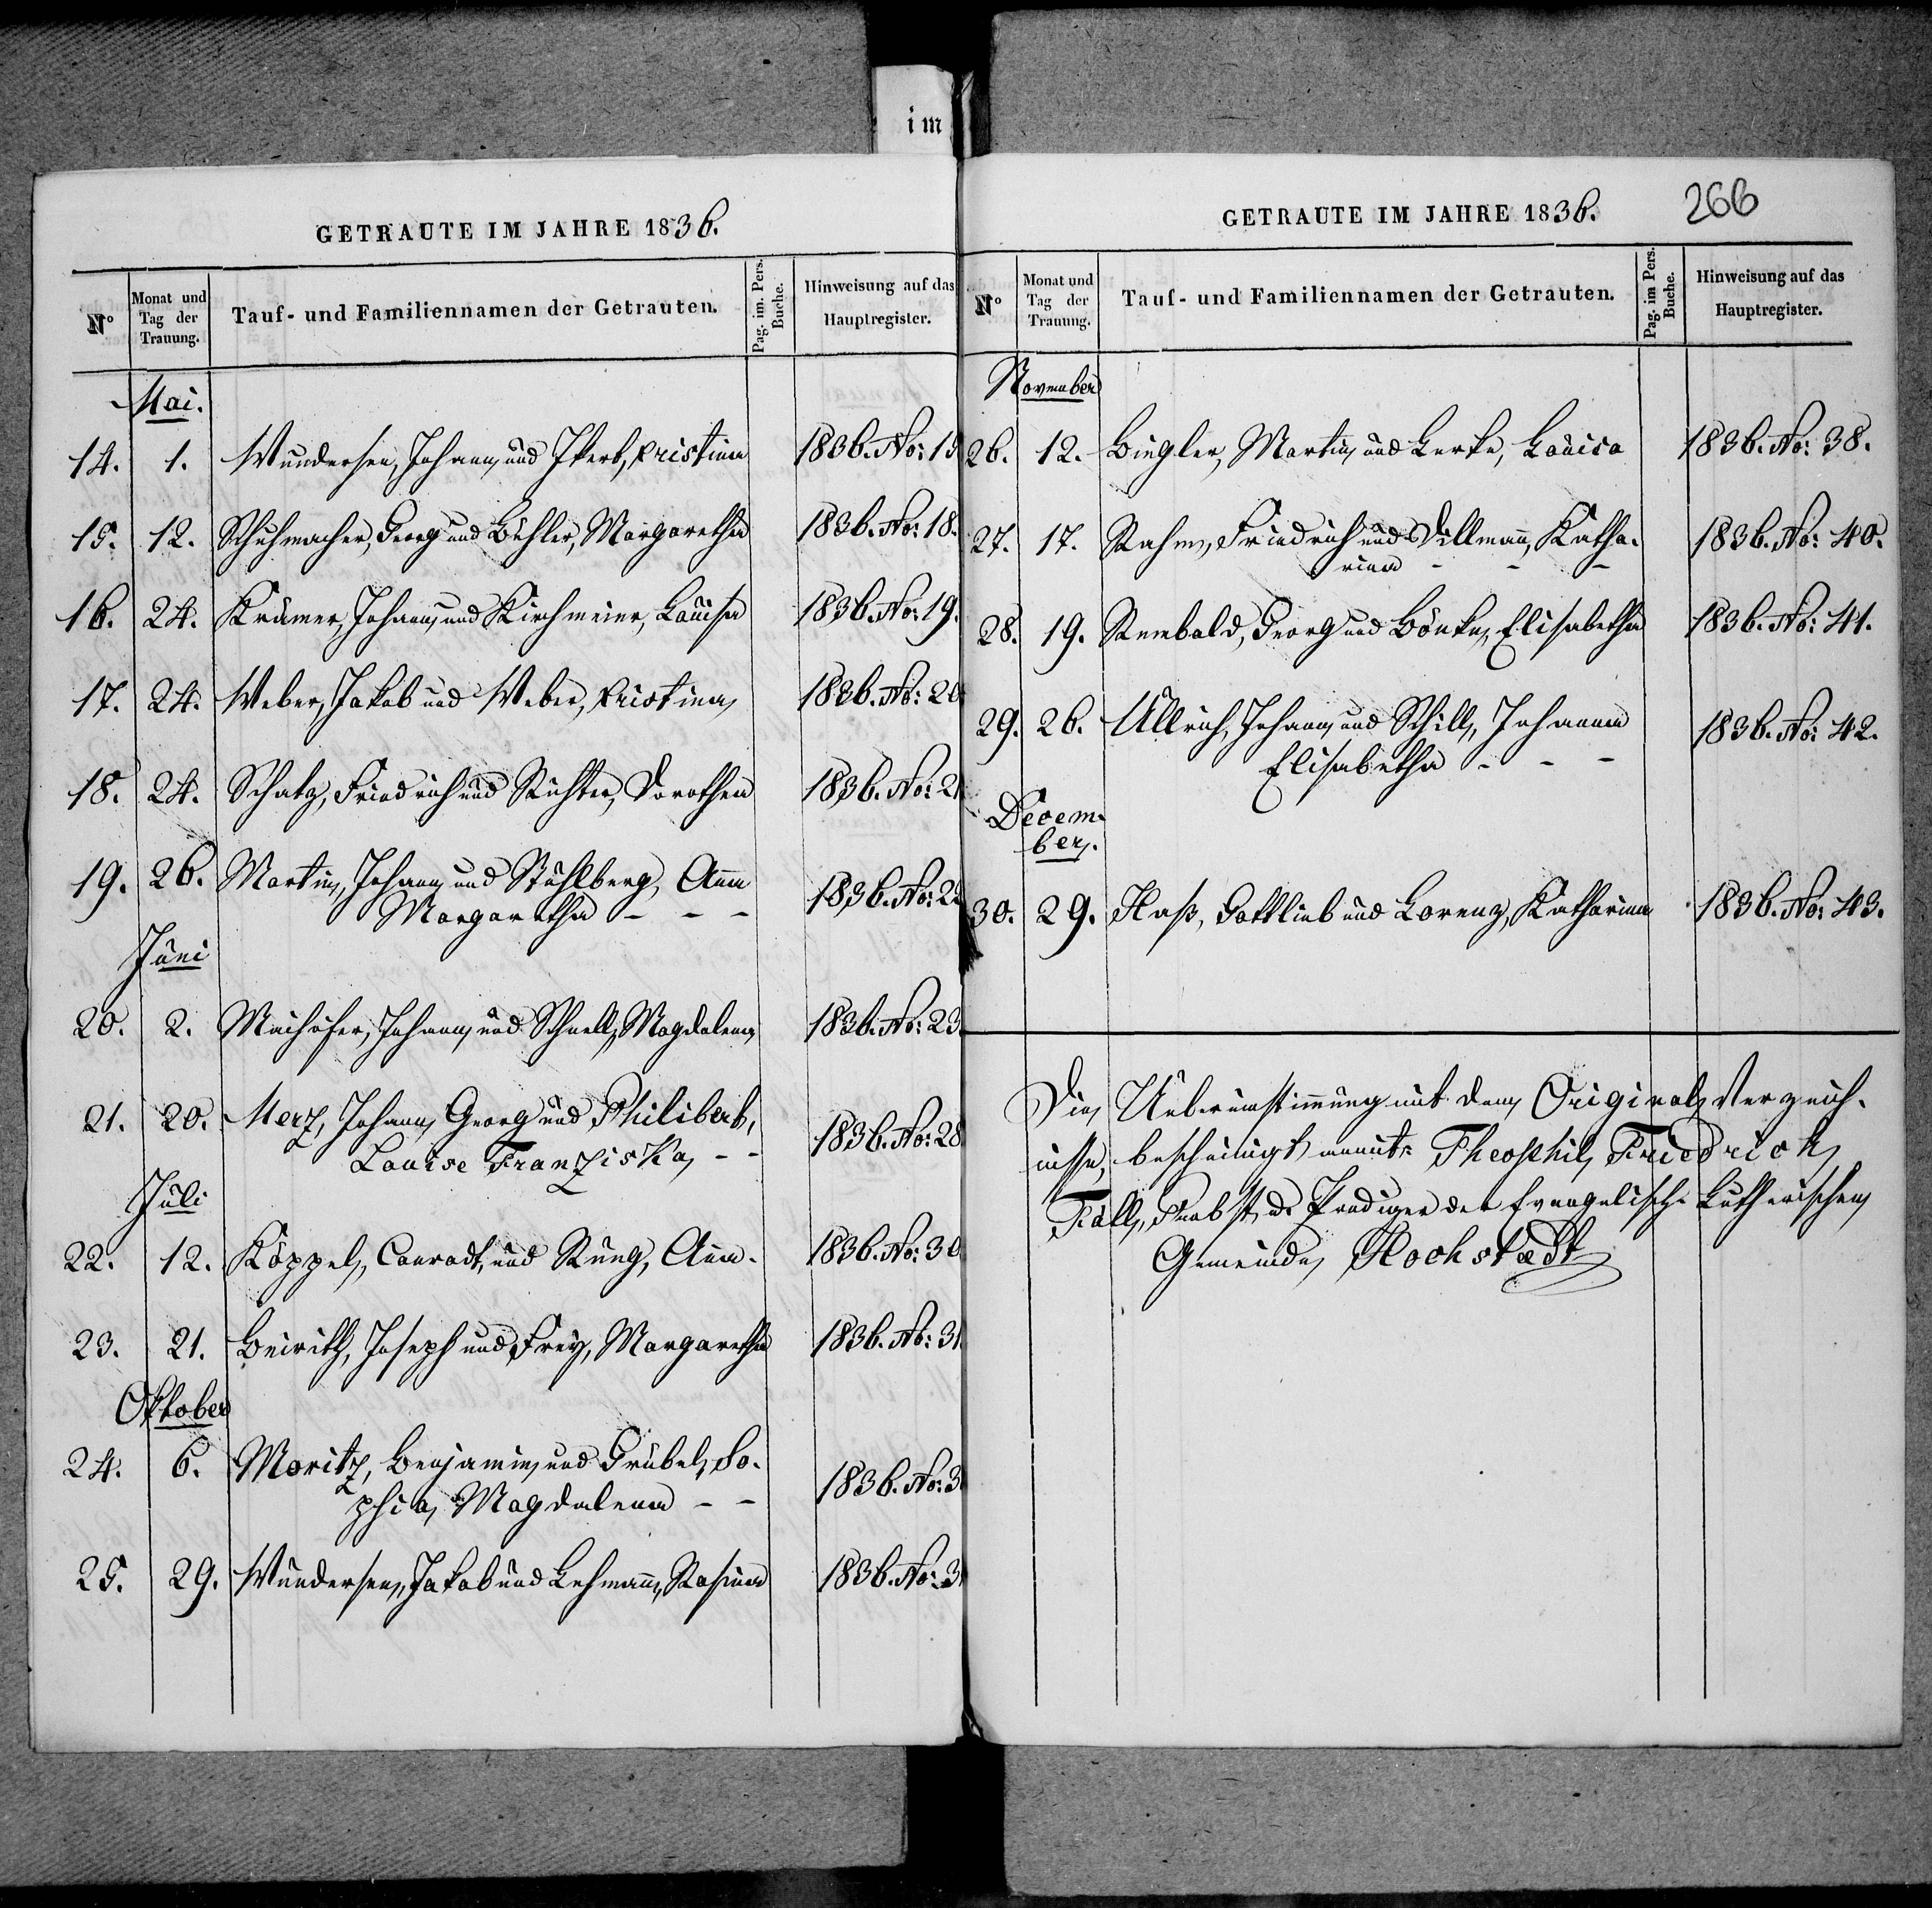 im
GETRAUTE IM JAHRE 1836.
No
Monat und Tag der Trauung.
Tauf- und Familiennamen der Getrauten.
Pag. im. Pers. Buche.
Hinweisung auf das Hauptregister.
Mai.
14. 1. Wundersee, Johann, und Ikert, Kristina 1836. No: 15
15. 12. Schuhmacher, Georg und Bühler, Margaretha 1836. No: 18.
16. 24. Krämer, Johann, und Kirchmeier, Louisa 1836. No: 19.
17. 24. Weber, Jakob und Weber, Kristina 1836. No: 20
18. 24. Schatz, Friedrich und Richter, Dorothea 1836. No: 21
19. 26. Martin, Johann und Stuhlberg, Anna 1836. No: 22
Margaretha - - -
Juni
20. 2. Maihöfer, Johann, und Schnell, Magdalena 1836. No: 23
21. 20. Merz, Johann Georg und Philibert, 1836. No: 28
Louise Franziska, - -
Juli
22. 12. Köppel, Conradt, und Rung, Anna. 1836. No: 30
23. 21. Beirith, Joseph und Frey, Margaretha 1836. No: 31
Oktober
24. 6. Moritz, Benjamin, und Grübel, So- 1836. No: 3
phia, Magdalena - -
25. 29. Wundersee, Jakob und Lehmann, Rosina 1836. No: 3
GETRAUTE IM JAHRE 1836.
266
No
Monat und Tag der Trauung.
Tauf- und Familiennamen der Getrauten.
Pag. im Pers. Buche.
Hinweisung auf das Hauptregister.
November
26. 12. Biegler, Martin, und Lerke, Louisa 1836. No: 38.
27. 17. Rahm, Friedrich und Dillmann, Katha- 1836. No: 40.
rina - - -
28. 19. Rembold, Georg und Bönke, Elisabetha 1836. No: 41.
29. 26. Ullrich, Johann, und Schill, Johanna 1836. No: 42.
Elisabetha - - -
Decem-
ber.
30. 29. Haß, Gottlieb und Lorenz, Katharina 1836. No: 43.
Die Uebereinstimmung mit dem Original Verzeich-
nisse, bescheinigt Theophil Friedrich
Föll, Probst und Prediger der Evangelisch Lutherischen
Gemeinde, Hochstædt